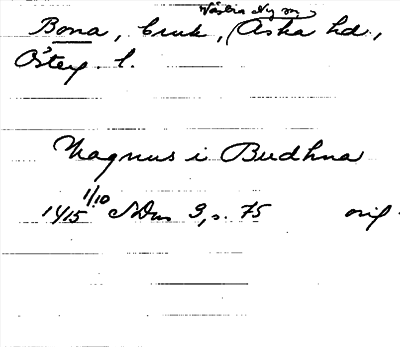 Västra Ny sn
Bona, bruk, (Aska hd,
Österg. l.
Magnus i Budhna
1415 1/10 SDns 3, s. 75 orig.